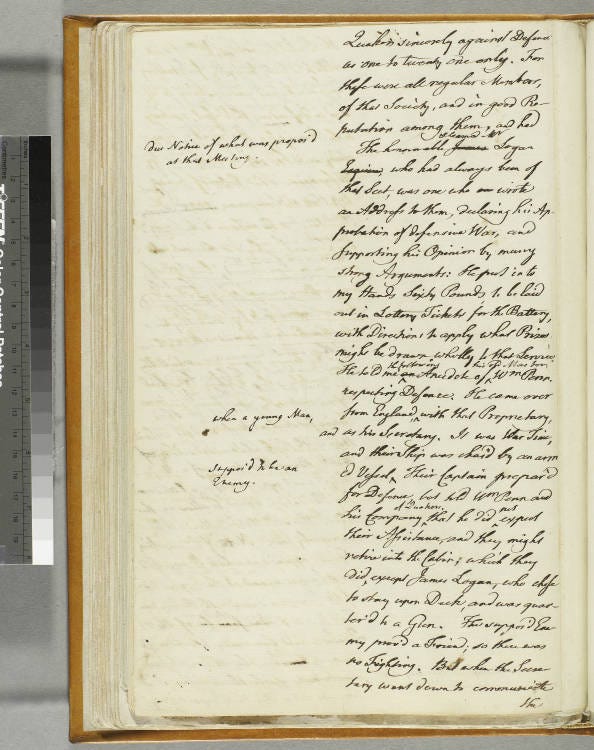 Quakers sincerely against Defence
as one to twenty one only. For
these were all regular Members,
of that Society, and in good Re-
putation among them, and had
due Notice of what was propos'd
at that Meeting.
The honorable & learned Mr Logan
who had always been of
that Sect, was one who wrote
an Address to them, declaring his Ap-
probation of defensive War, and
supporting his Opinion by many
strong Arguments: He put into
my Hands Sixty Pounds to be laid
out in Lottery Tickets for the Battery,
with Directions to apply what Prizes
might be drawn wholly to that Service.
He told me the following Anecdote of his old Master Wm Penn
respecting Defence. He came over
from England, when a young Man, with that Proprietary,
and as his Secretary. It was War Time,
and their Ship was chas'd by an arm-
'd Vessel suppos'd to be an
Enemy. Their Captain prepar'd
for Defence, but told Wm Penn and
his Company of Quakers, that he did not expect
their Assistance, and they might
retire into the Cabin; which they
did, except James Logan, who chose
to stay upon Deck, and was quar-
ter'd to a Gun. The suppos'd Ene-
my prov'd a Friend; so there was
no Fighting. But when the Secre-
tary went down to communicate
the